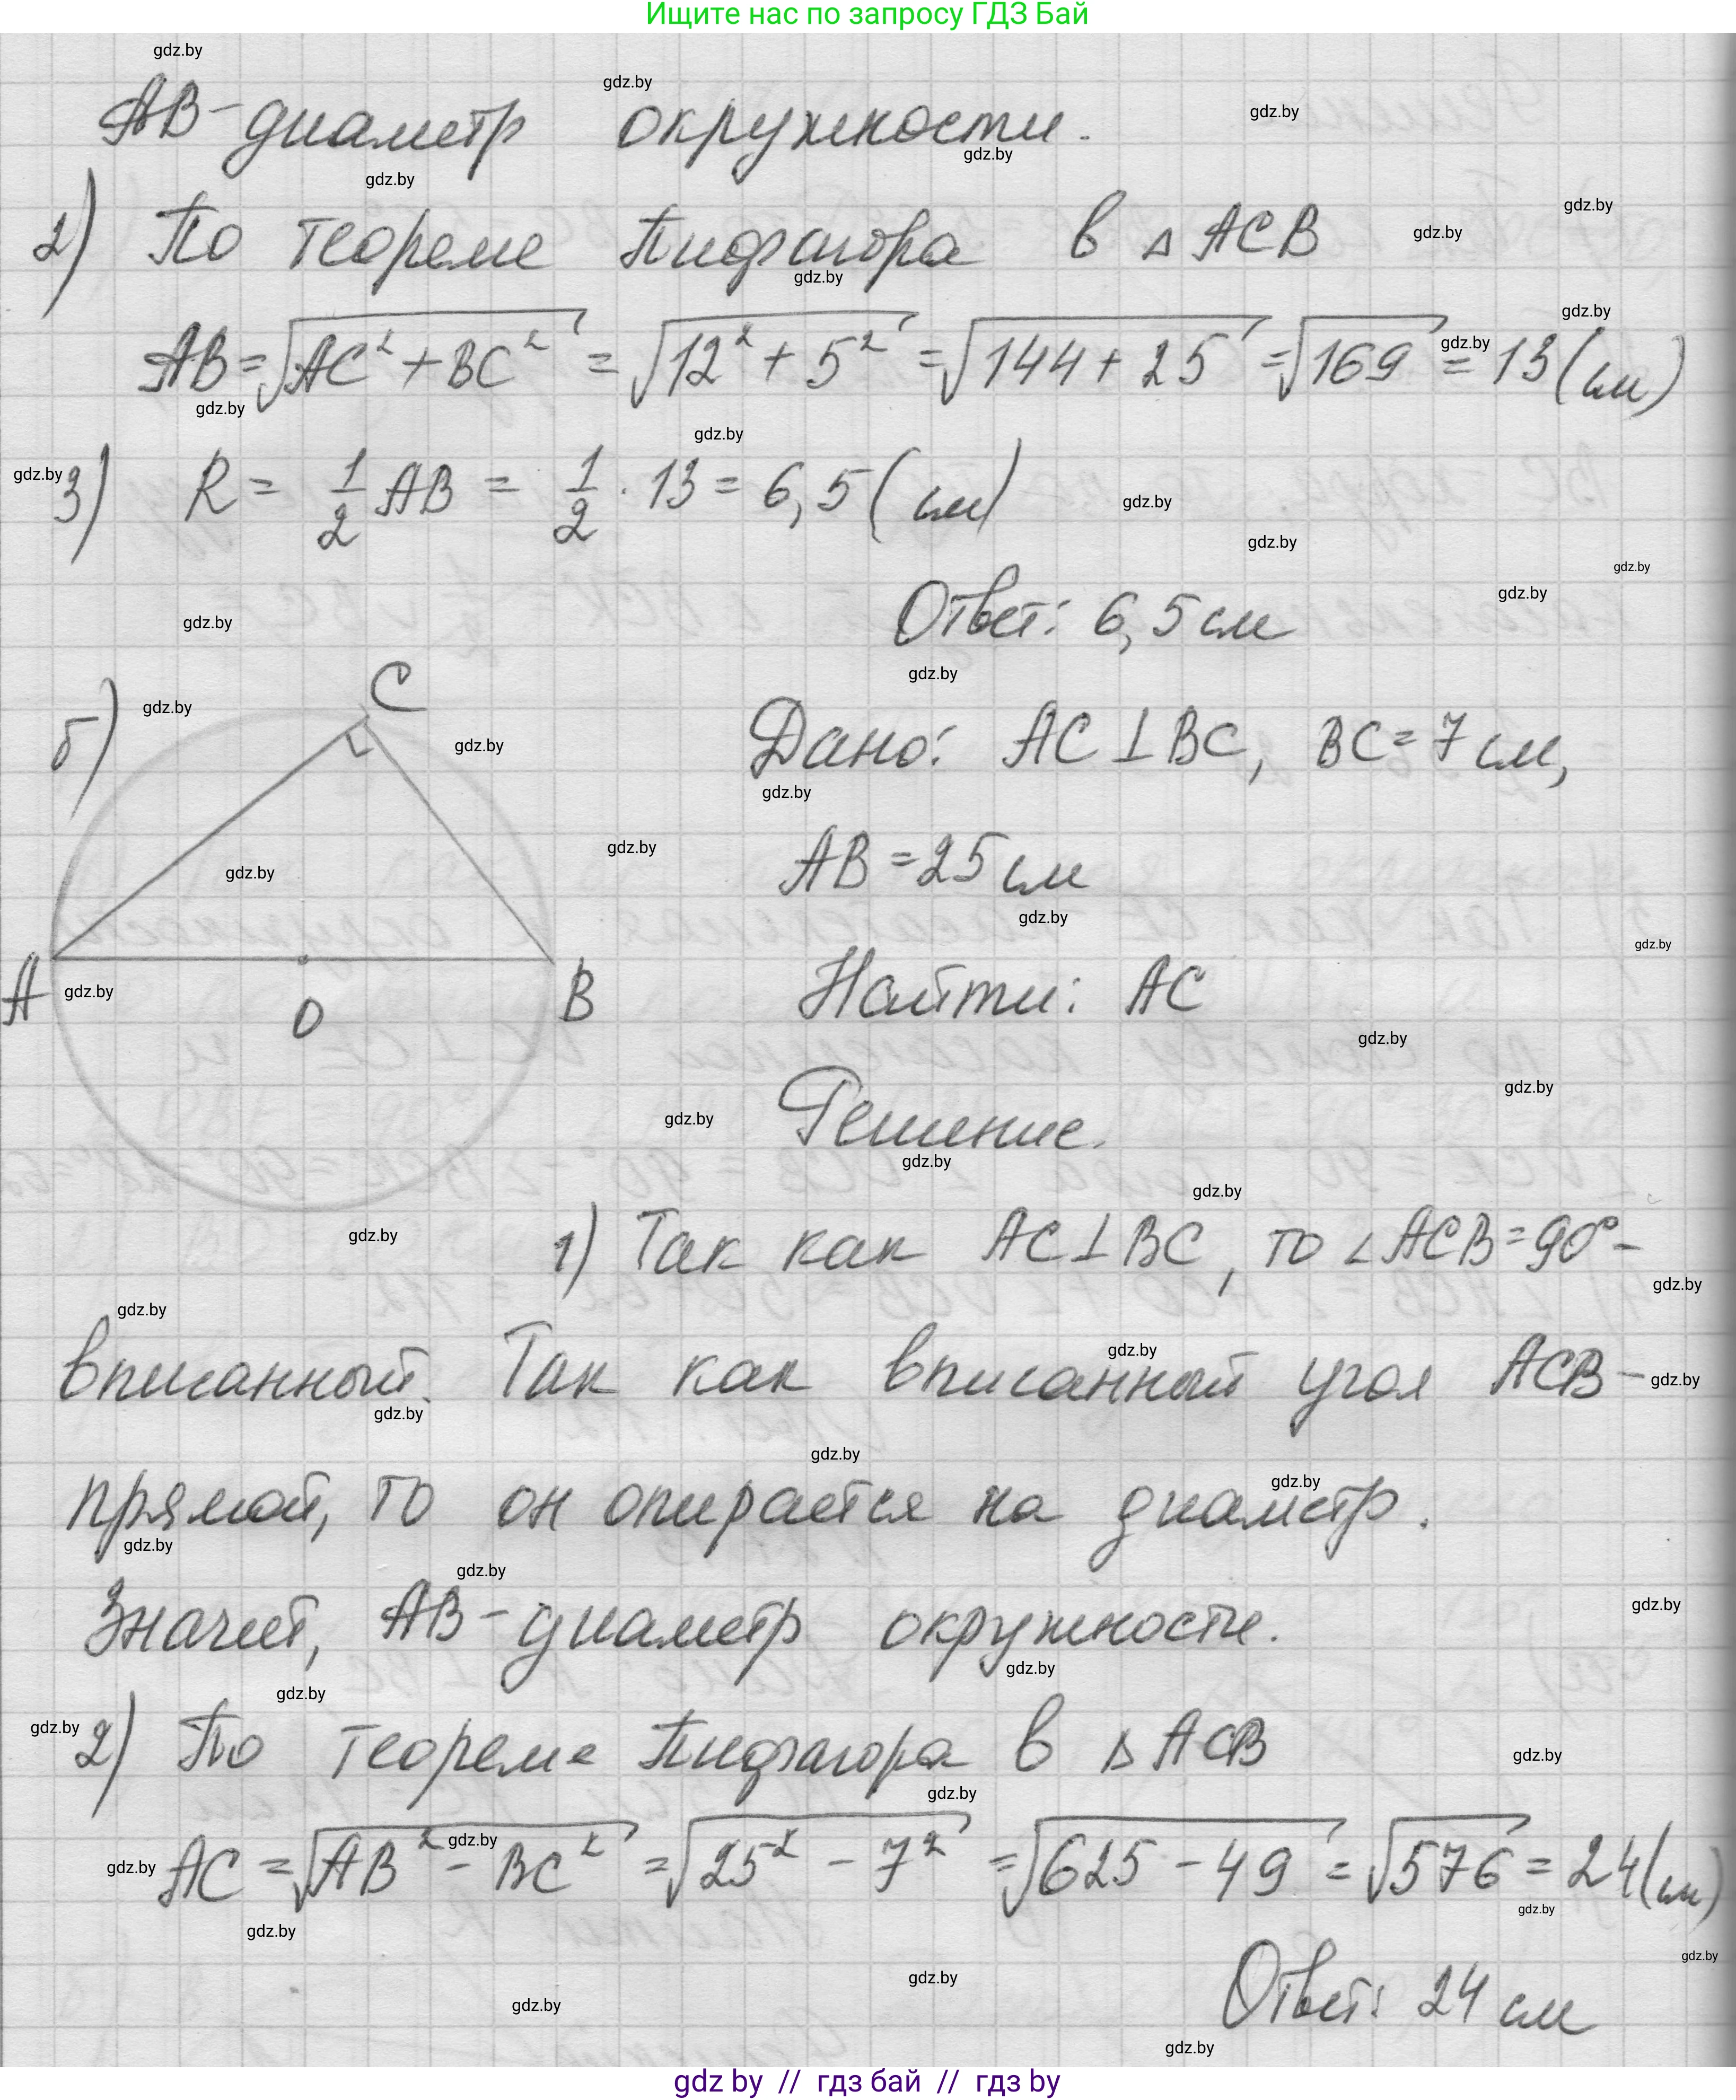 Ищите нас по запросу ГДЗ Бай
AB - диаметр окружности.
2) По теореме Пифагора в △ACB
AB = √(AC² + BC²) = √(12² + 5²) = √(144 + 25) = √169 = 13 (см)
3) R = 1/2 AB = 1/2 · 13 = 6,5 (см)
Ответ: 6,5 см
б)
C
A
O
B
Дано: AC ⊥ BC, BC = 7 см,
AB = 25 см
Найти: AC
Решение.
1) Так как AC ⊥ BC, то ∠ACB = 90° -
вписанный. Так как вписанный угол ACB -
прямой, то он опирается на диаметр.
Значит, AB - диаметр окружности.
2) По теореме Пифагора в △ACB
AC = √(AB² - BC²) = √(25² - 7²) = √(625 - 49) = √576 = 24 (см)
Ответ: 24 см
gdz by // гдз бай // гдз by